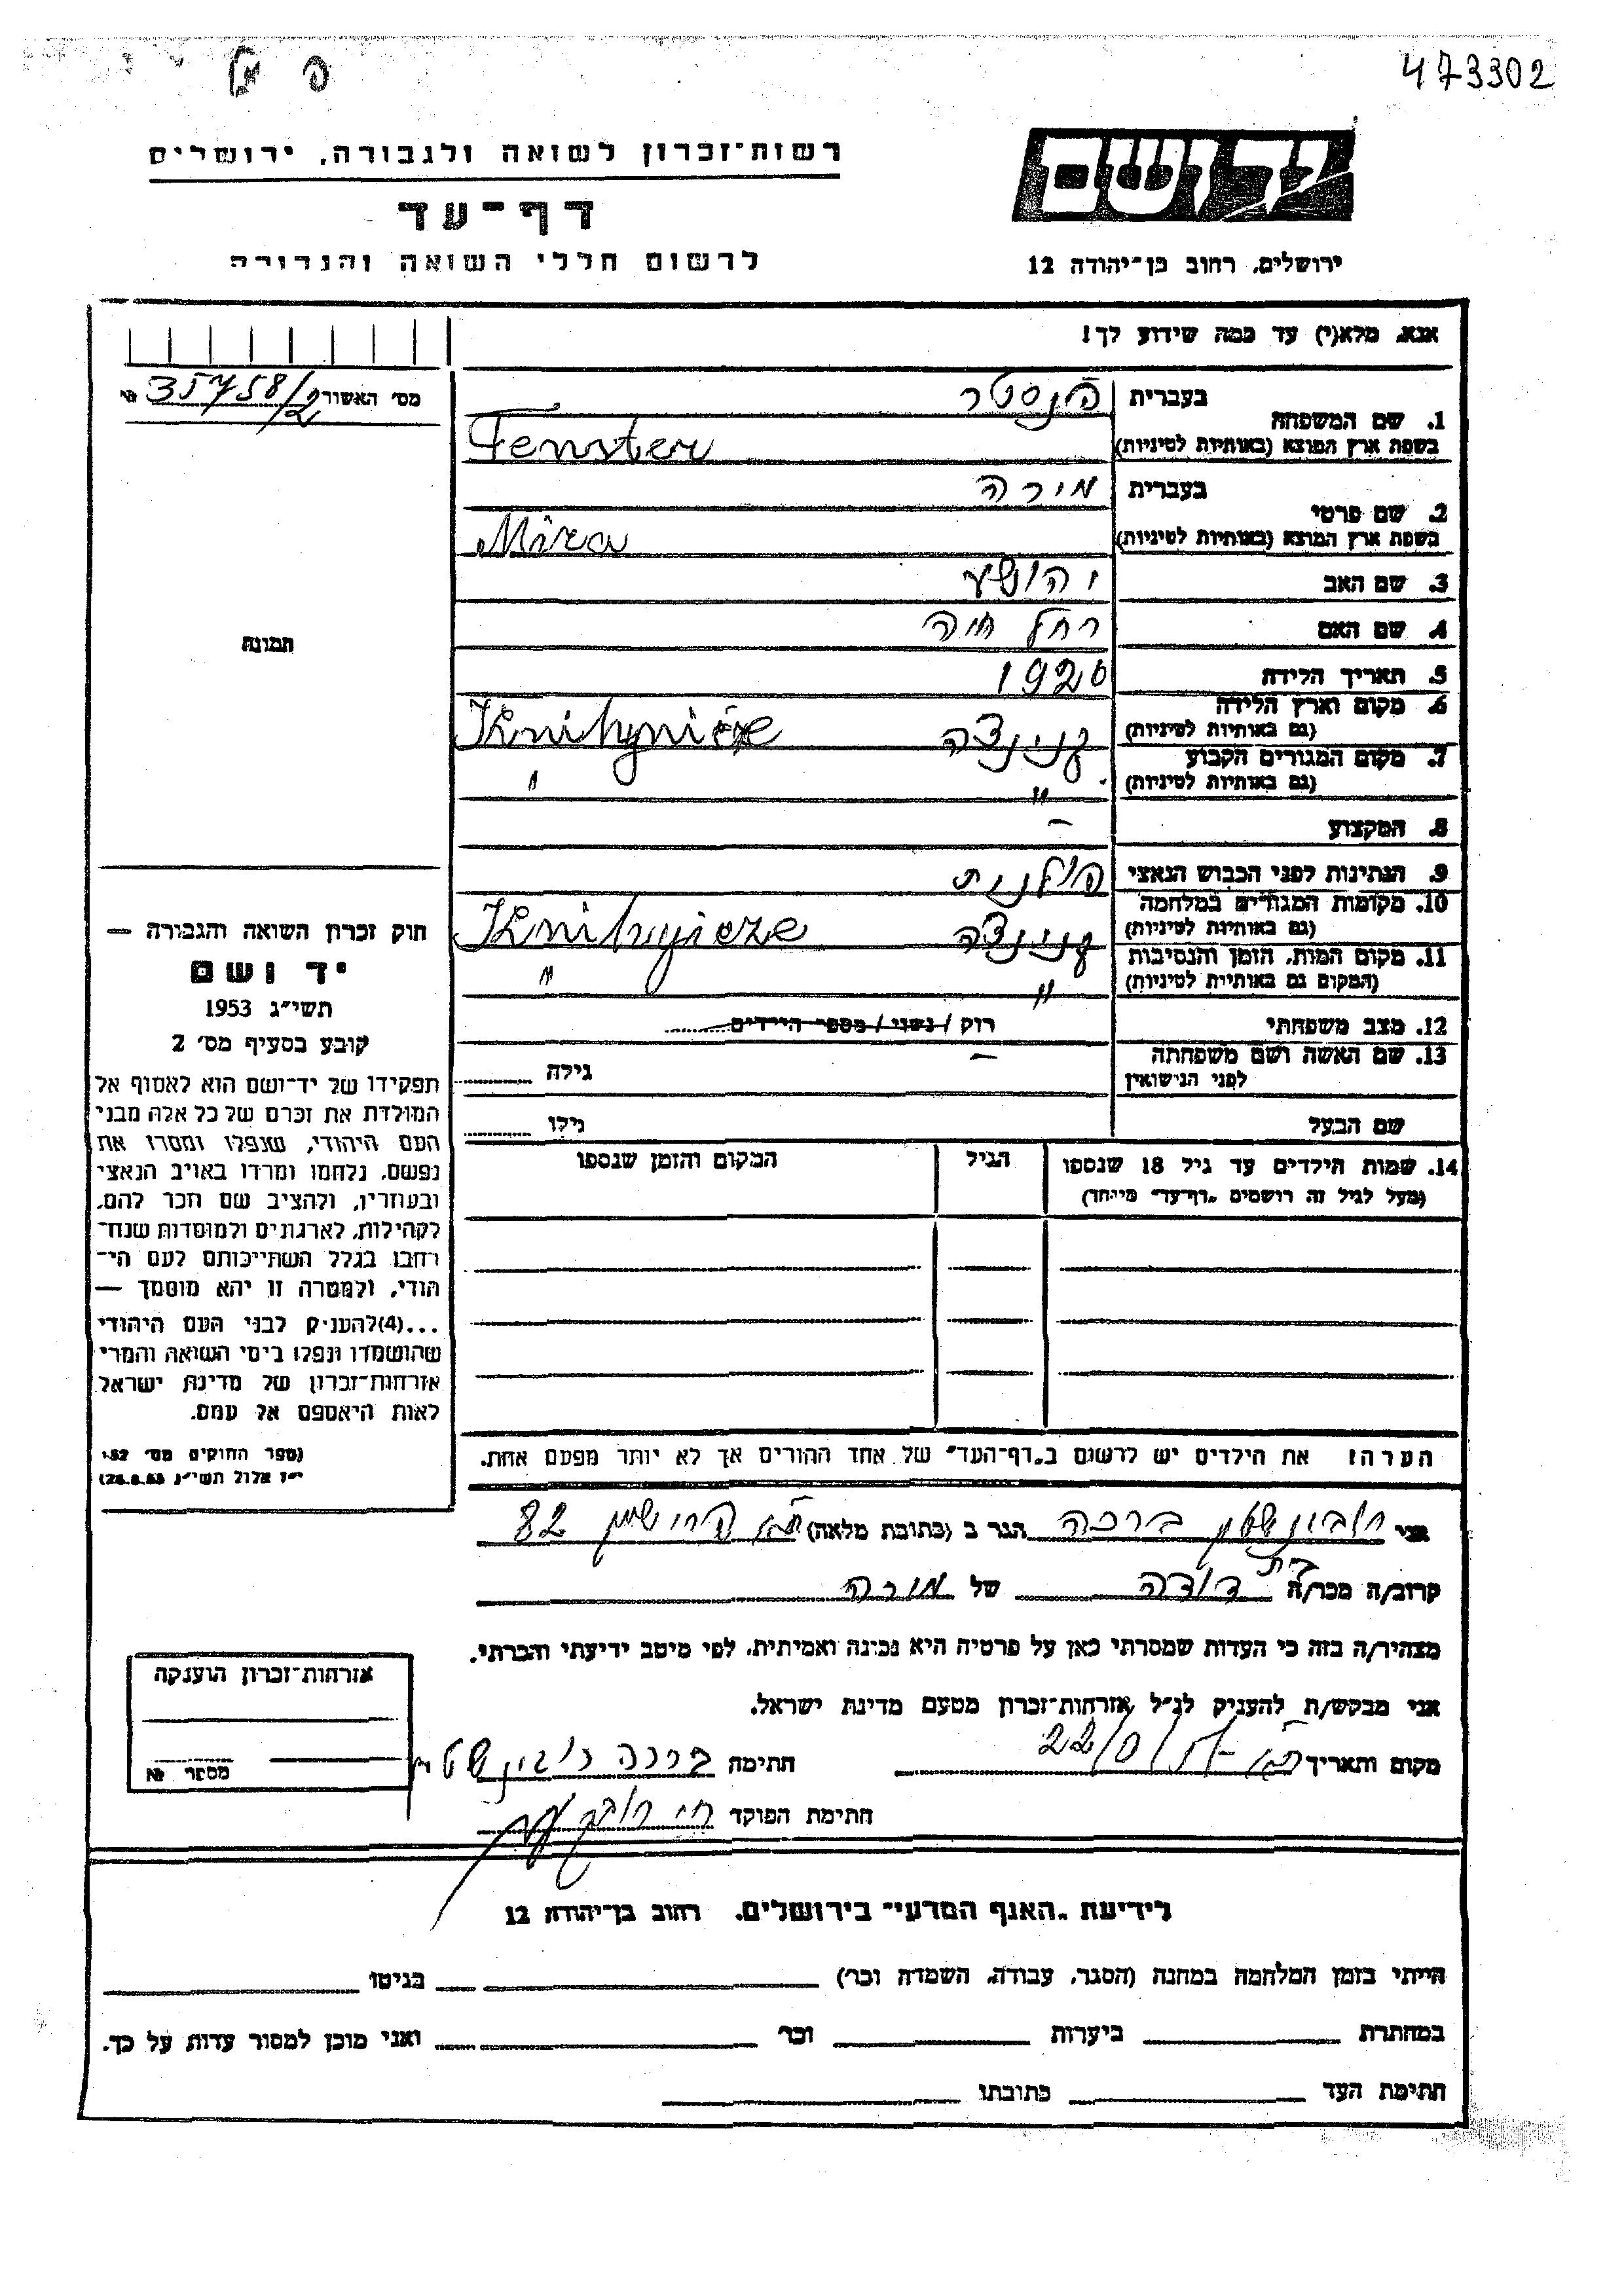 473302
רשות־זכרון לשואה ולגבורה, ירושלים
דף־עד
לרשום חללי השואה והגבורה
יד ושם
ירושלים, רחוב בן־יהודה 12
אנא, מלא(י) עד כמה שידוע לך!
מס' האשור № 35758/2
1. שם המשפחה
בעברית פנסטר
בשפת ארץ המוצא (באותיות לטיניות) Fenster
2. שם פרטי
בעברית מירה
בשפת ארץ המוצא (באותיות לטיניות) Mira
3. שם האב יהושע
4. שם האם רחל חיה
תמונה
5. תאריך הלידה 1920
6. מקום וארץ הלידה
(גם באותיות לטיניות) Knihynicze
7. מקום המגורים הקבוע
(גם באותיות לטיניות) " "
8. המקצוע –
9. הנתינות לפני הכבוש הנאצי פולנית
10. מקומות המגורים במלחמה
(גם באותיות לטיניות) Knihynicze
11. מקום המות, הזמן והנסיבות
(המקום גם באותיות לטיניות) " "
12. מצב משפחתי רוק / נשוי / מספר הילדים
13. שם האשה ושם משפחתה
לפני הנישואין – גילה
שם הבעל גילו
14. שמות הילדים עד גיל 18 שנספו
(מעל לגיל זה רושמים "דף־עד" מיוחד)
הגיל
המקום והזמן שנספו
חוק זכרון השואה והגבורה —
יד ושם
תשי"ג 1953
קובע בסעיף מס' 2
תפקידו של יד־ושם הוא לאסוף אל
המולדת את זכרם של כל אלה מבני
העם היהודי, שנפלו ומסרו את
נפשם, נלחמו ומרדו באויב הנאצי
ובעוזריו, ולהציב שם וזכר להם,
לקהילות, לארגונים ולמוסדות שנח־
רבו בגלל השתייכותם לעם הי־
הודי, ולמטרה זו יהא מוסמך —
...(4) להעניק לבני העם היהודי
שהושמדו ונפלו בימי השואה והמרי
אזרחות־זכרון של מדינת ישראל
לאות היאספם אל עמם.
(ספר החוקים מס' 132
י"ז אלול תשי"ג 28.8.53)
הערה: את הילדים יש לרשום ב"דף־העד" של אחד ההורים אך לא יותר מפעם אחת.
אני רובינשטין ברכה הגר ב (כתובת מלאה) 82
קרוב/ה מכר/ה בת דודה של מירה
מצהיר/ה בזה כי העדות שמסרתי כאן על פרטיה היא נכונה ואמיתית, לפי מיטב ידיעתי והכרתי.
אני מבקש/ת להעניק לנ"ל אזרחות־זכרון מטעם מדינת ישראל.
מקום ותאריך חתימה ברכה רובינשטין
חתימת הפוקד
אזרחות־זכרון הוענקה
מספר №
לידיעת "האגף המדעי" בירושלים, רחוב בן־יהודה 12
הייתי בזמן המלחמה במחנה (הסגר, עבודה, השמדה וכו') בגיטו
במחתרת ביערות וכו' ואני מוכן למסור עדות על כך.
חתימת העד כתובתו